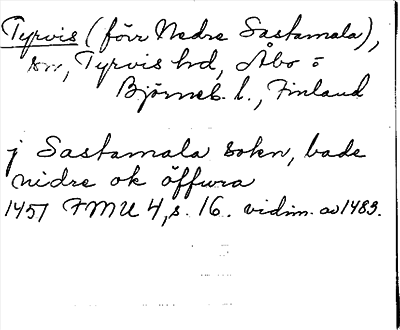 Tyrvis (förr Nedre Sastamala),
sn, Tyrvis hd, Åbo o
Björneb. l., Finland
j Sastamala sokn, bade
nidre ok öffwra
1451 FMU 4, s. 16. vidim. av 1483.